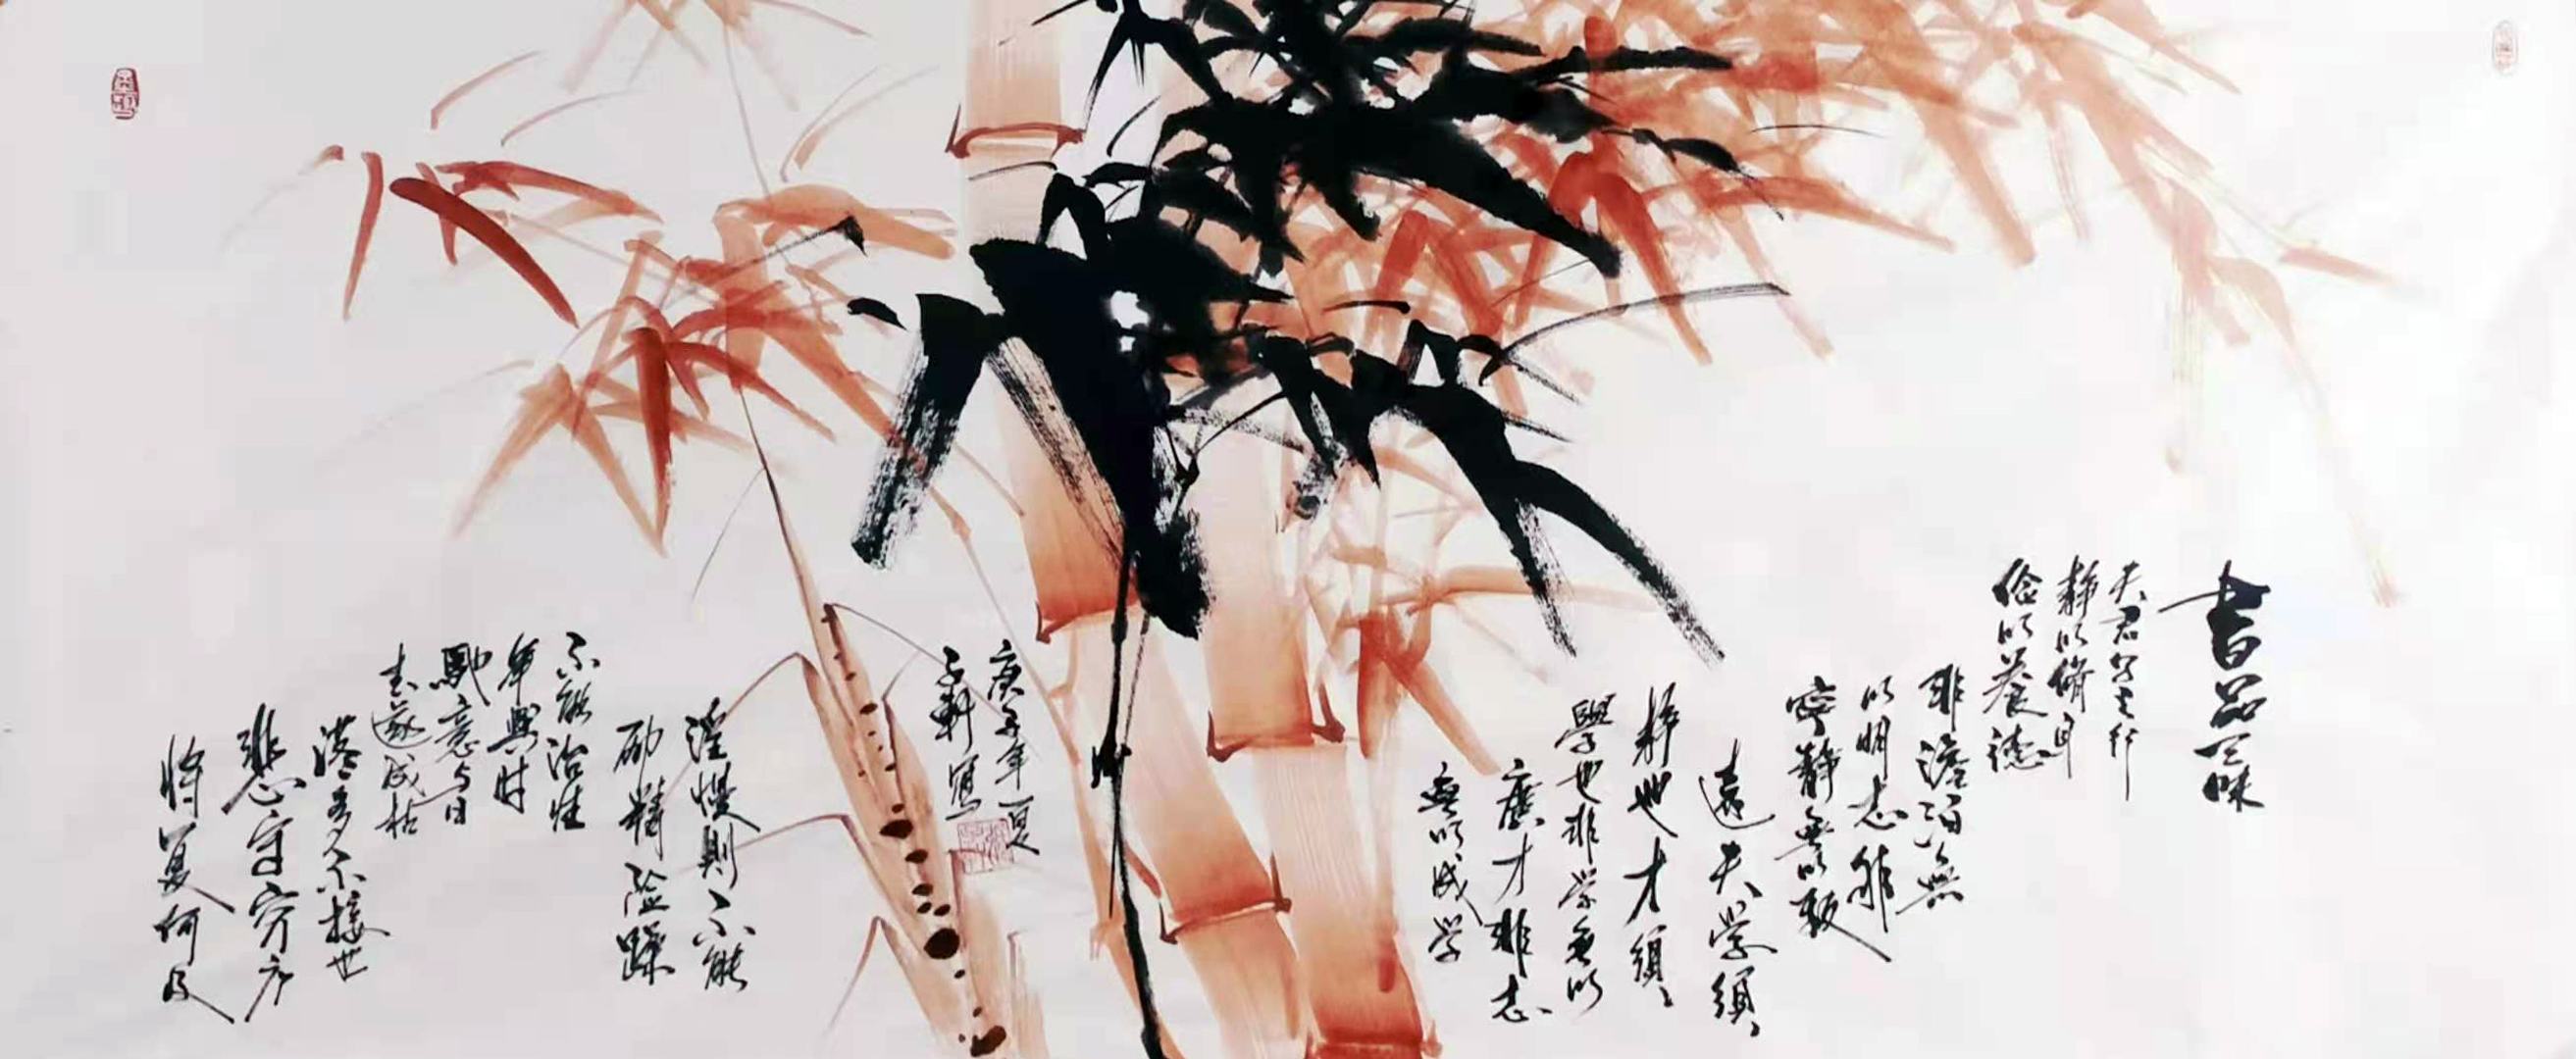 書品三味
夫君子之行
静以脩身
儉以養德
非澹泊無
以明志非
寧静無以致
遠夫学須
静也才須
學也非学無以
廣才非志
無以成学
淫慢則不能
励精险躁
不能治性
年與时
馳意与日
去遂成枯
落多不接世
悲守穷庐
将复何及
庚子年夏
子軒寫